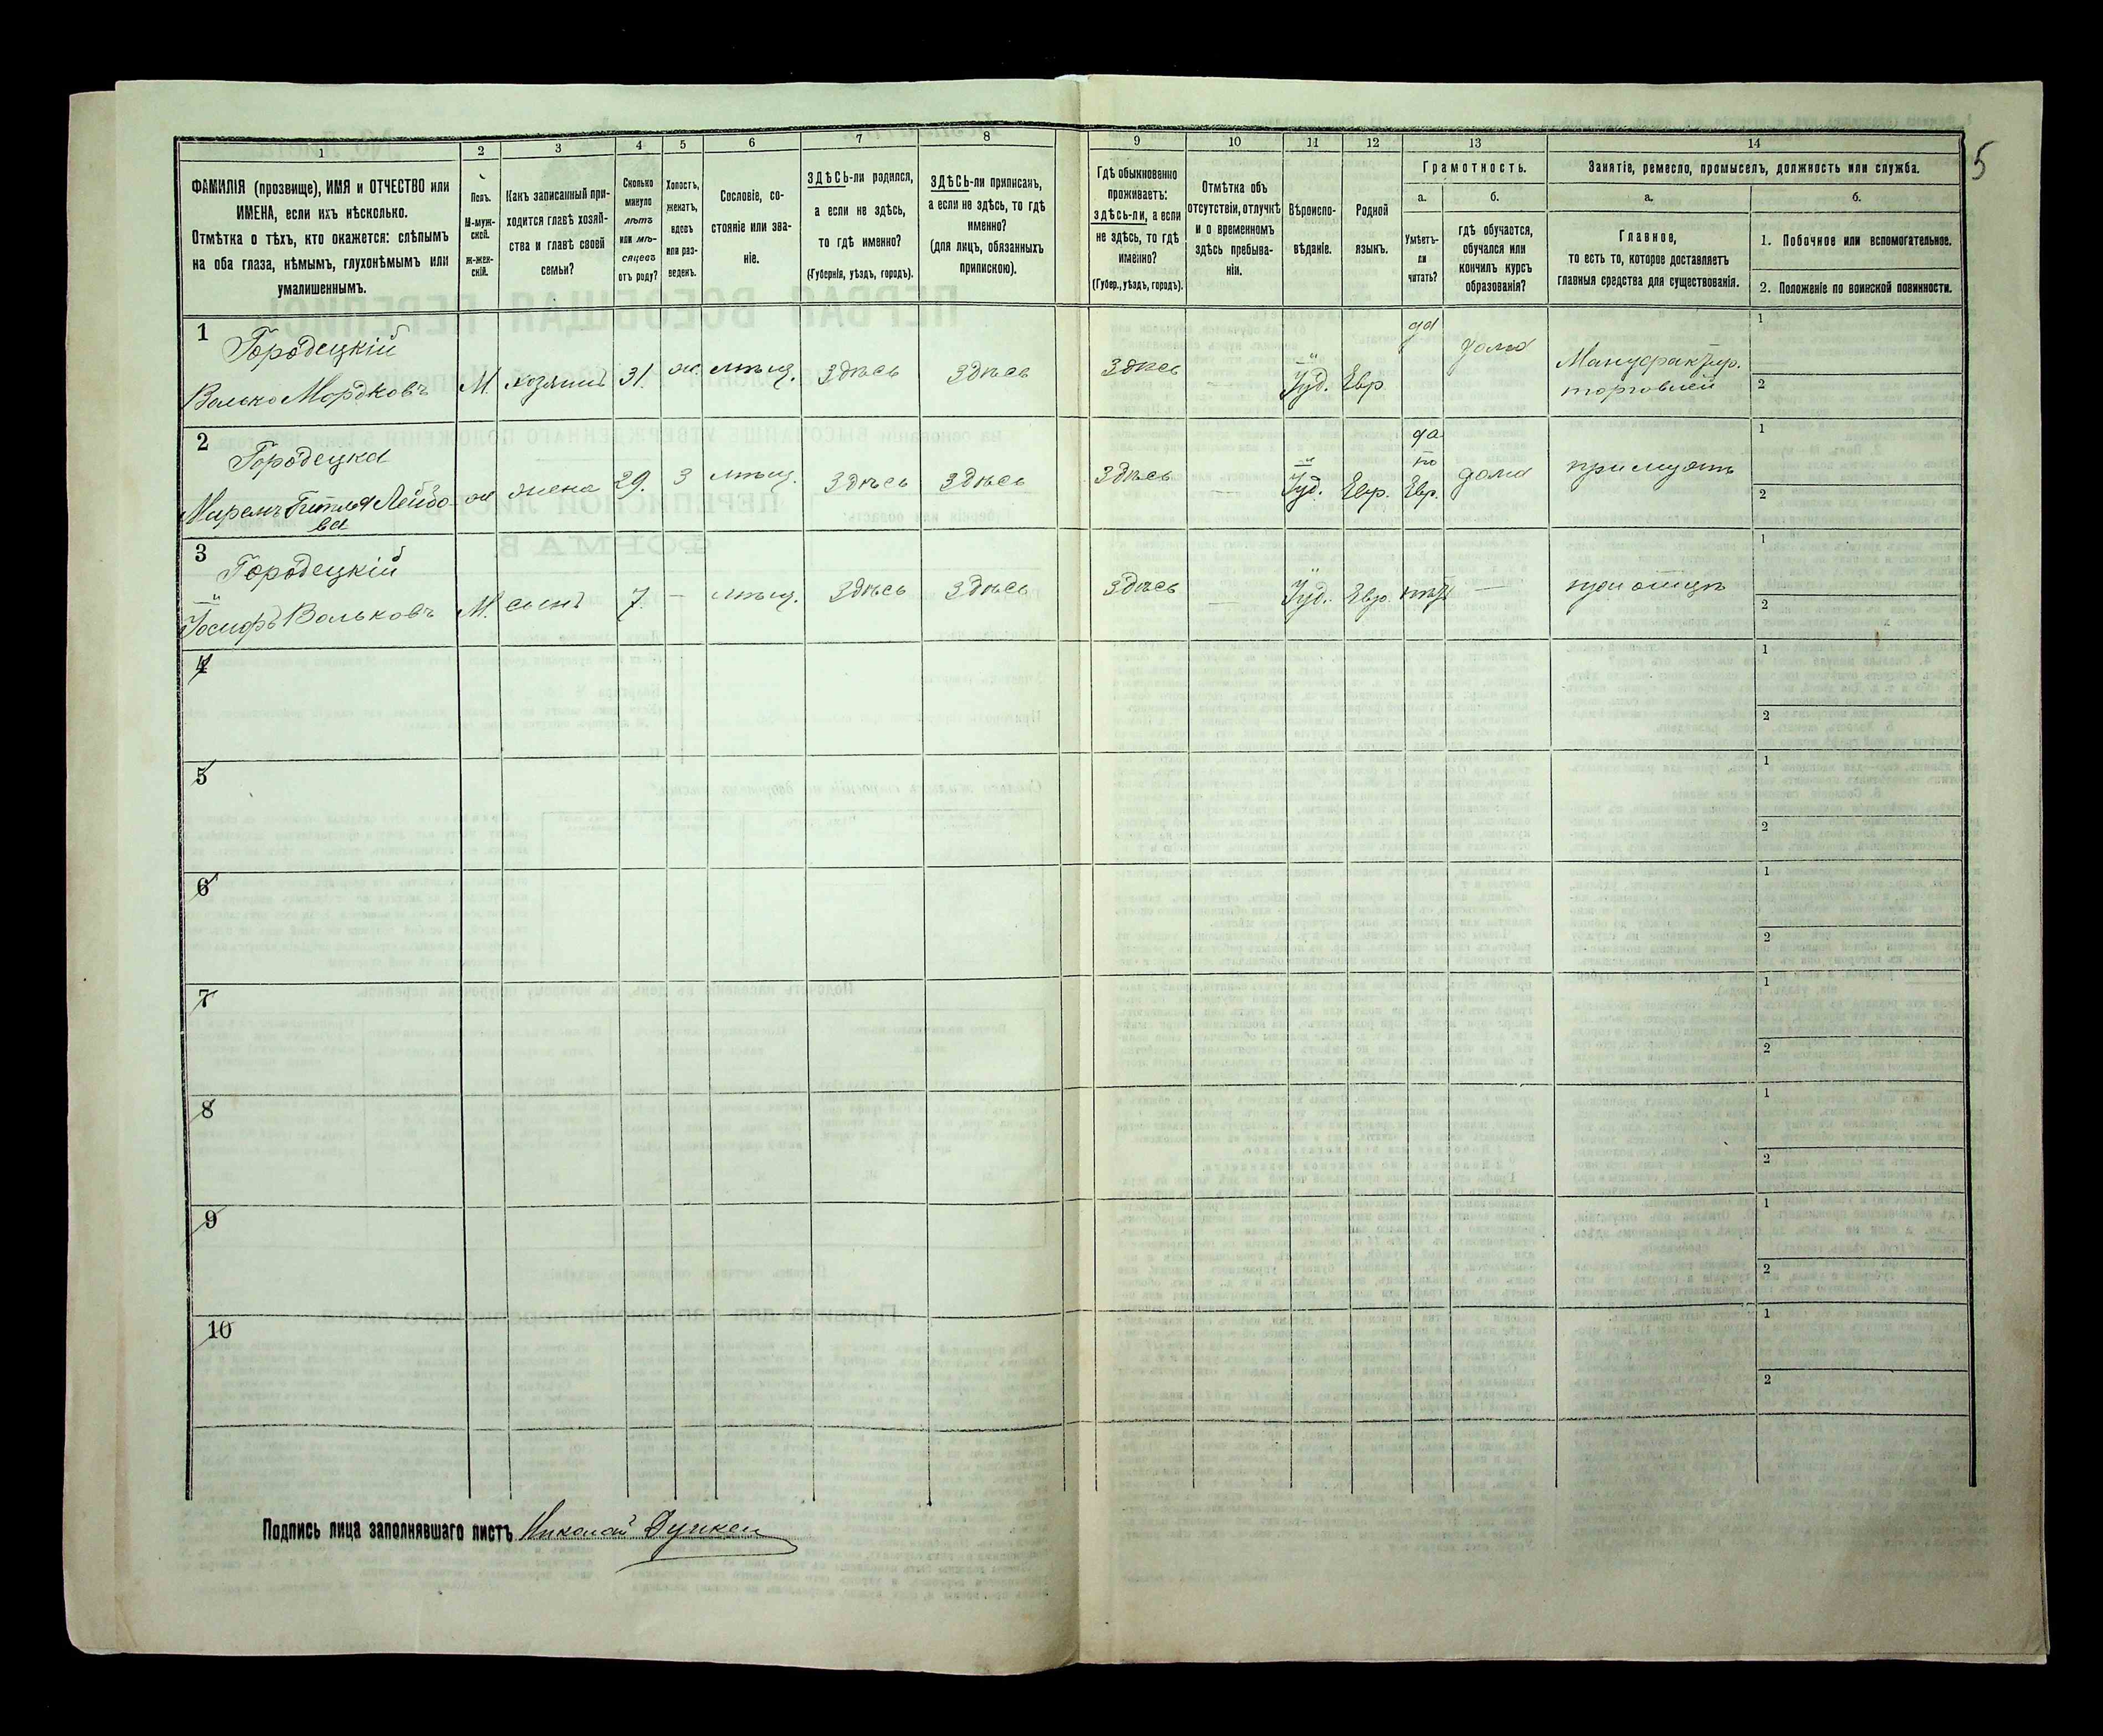 5
1 2 3 4 5 6 7 8 9 10 11 12 13 14
ФАМИЛІЯ (прозвище), ИМЯ и ОТЧЕСТВО или
ИМЕНА, если ихъ нѣсколько.
Отмѣтка о тѣхъ, кто окажется: слѣпымъ
на оба глаза, нѣмымъ, глухонѣмымъ или
умалишеннымъ.
Полъ.
М-муж-
ской.
ж-жен-
скій.
Какъ записанный при-
ходится главѣ хозяй-
ства и главѣ своей
семьи?
Сколько
минуло
лѣтъ
или мѣ-
сяцевъ
отъ роду?
Холостъ,
женатъ,
вдовъ
или раз-
веденъ.
Сословіе, со-
стояніе или зва-
ніе.
ЗДѢСЬ-ли родился,
а если не здѣсь,
то гдѣ именно?
(Губернія, уѣздъ, городъ).
ЗДѢСЬ-ли приписанъ,
а если не здѣсь, то гдѣ
именно?
(для лицъ, обязанныхъ
припискою).
Гдѣ обыкновенно
проживаетъ:
здѣсь-ли, а если
не здѣсь, то гдѣ
именно?
(Губер., уѣздъ, городъ).
Отмѣтка объ
отсутствіи, отлучкѣ
и о временномъ
здѣсь пребыва-
ніи.
Вѣроиспо-
вѣданіе.
Родной
языкъ.
Грамотность.
а.
Умѣетъ-
ли
читать?
б.
гдѣ обучается,
обучался или
кончилъ курсъ
образованія?
Занятіе, ремесло, промыселъ, должность или служба.
а.
Главное,
то есть то, которое доставляетъ
главныя средства для существованія.
б.
1. Побочное или вспомогательное.
2. Положеніе по воинской повинности.
1
Городецкій
Волько Мордковъ М. хозяинъ 31. ж. мѣщ. Здѣсь Здѣсь Здѣсь — Іуд. Евр да дома Мануфактур.
торговлей
1
2
2
Городецка
Мирямъ Гитля Лейбо-
ва
ж жена 29. З мѣщ. Здѣсь Здѣсь Здѣсь — Іуд. Евр. да
по
Евр. дома при мужѣ
1
2
3
Городецкій
Іосифъ Вольковъ М. сынъ 7. — мѣщ. Здѣсь Здѣсь Здѣсь — Іуд. Евр. нѣтъ — при отцѣ
1
2
4
1
2
5
1
2
6
1
2
7
1
2
8
1
2
9
1
2
10
1
2
Подпись лица заполнявшаго листъ Николай